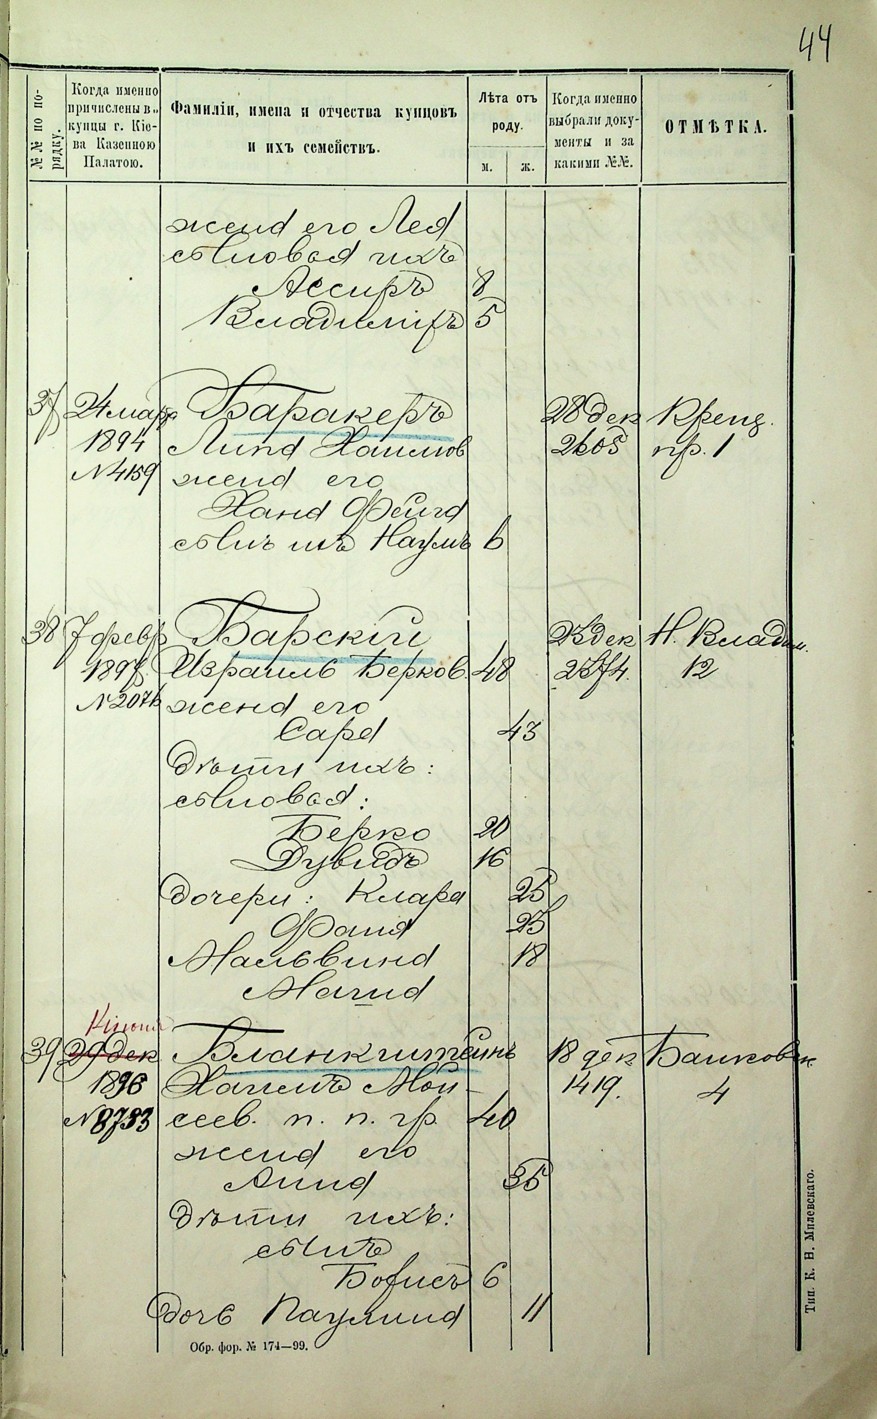 44
№№ по по-
рядку.
Когда именно
причислены в
купцы г. Кіе-
ва Казенною
Палатою.
Фамиліи, имена и отчества купцовъ
и ихъ семействъ.
Лѣта отъ
роду.
м. ж.
Когда именно
выбрали доку-
менты и за
какими №№.
ОТМѢТКА.
жена его Лея
сыновья ихъ
Ассиръ 8
Владиміръ 5
37 24 мар Баракеръ 28 дек Крещ.
1894 Липа Хаимов 2605 пр. 1
№ 4159 жена его
Хана Фейга
сынъ ихъ Наумъ 6
38 7 февр Барскій 23 дек Н. Владим.
1897 Израиль Берков. 48 2374. 12
№ 2076 жена его
Сара 43
дѣти ихъ:
сыновья:
Берко 20
Дувидъ 16
дочери: Клара 25
Фаня 23
Мальвина 18
Магид
39 29 дек Бланкштейнъ 18 дек Банковск.
1896 Хаимъ Мои- 1419. 4
№ 8733 сеев. п. п. гр. 40
жена его
Анна 35
дѣти ихъ:
сынъ
Борисъ 6
дочь Паулина 11
Обр. фор. № 174—99.
Тип. К. Н. Милевскаго.